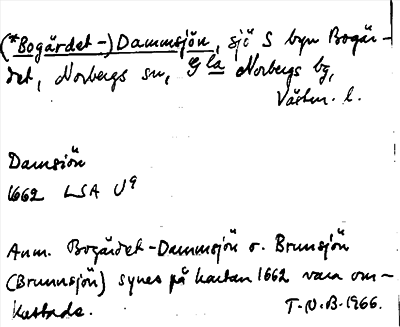 (*Bogärdet-) Dammsjön, sjö S byn Bogär-
det, Norbergs sn, G la Norbergs bg,
Västm. l.
Damsjön
1662 LSA U9
Anm. Bogärdet-Dammsjön o. Brunsjön
(Brunnsjön) synes på kartan 1662 vara om-
kastade. T.N.B. 1966.